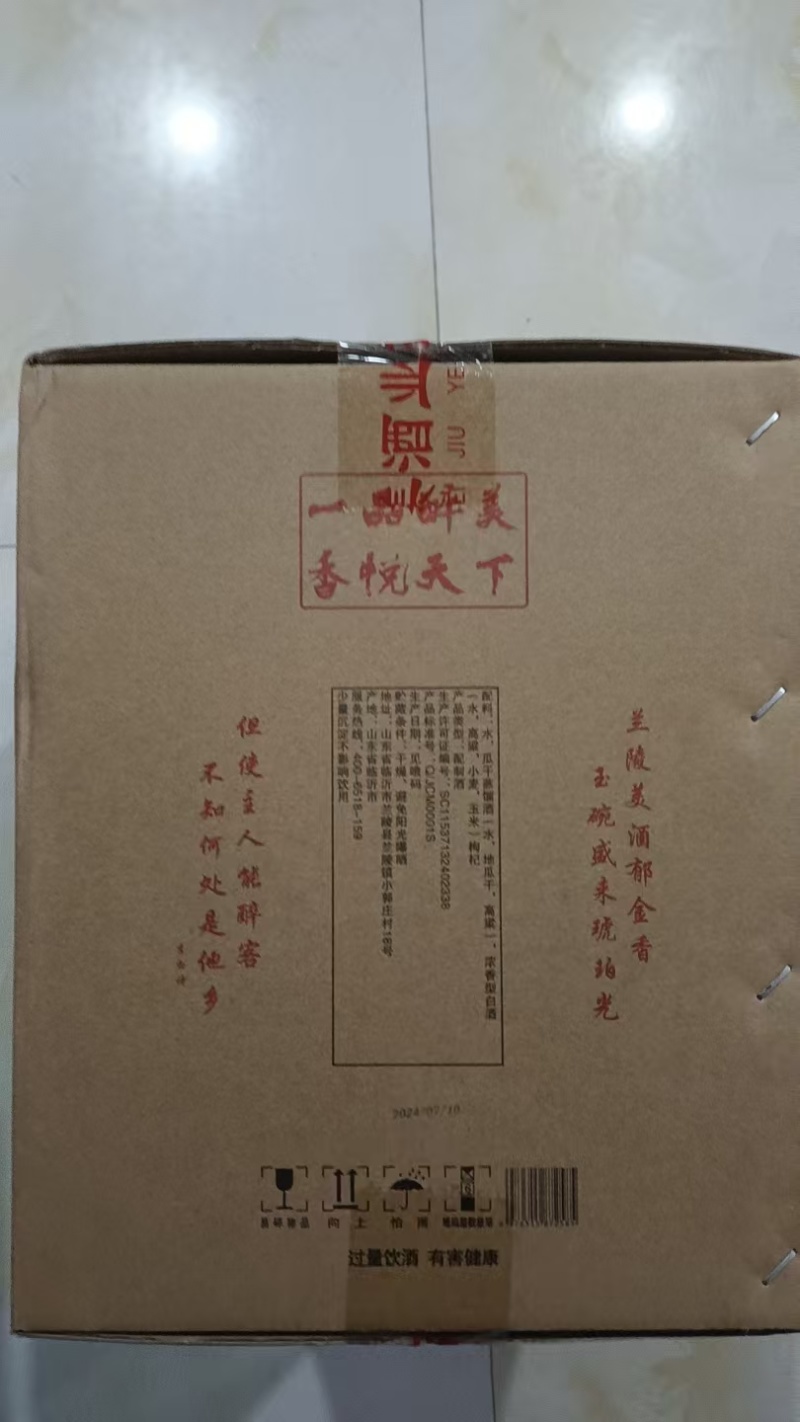 JIU YE
一品醉美
香悦天下
兰陵美酒郁金香
玉碗盛来琥珀光
但使主人能醉客
不知何处是他乡
配料：水、瓜干蒸馏酒（水、地瓜干、高粱）、浓香型白酒
（水、高粱、小麦、玉米）枸杞
产品类型：配制酒
生产许可证编号：SC11537132402338
产品标准号：Q/JCM0001S
生产日期：见喷码
贮藏条件：干燥、避免阳光爆晒
地址：山东省临沂市兰陵县兰陵镇小郭庄村18号
产地：山东省临沂市
服务热线：400-6518-159
少量沉淀不影响饮用
2024/07/10
易碎物品
向上
怕雨
过量饮酒 有害健康